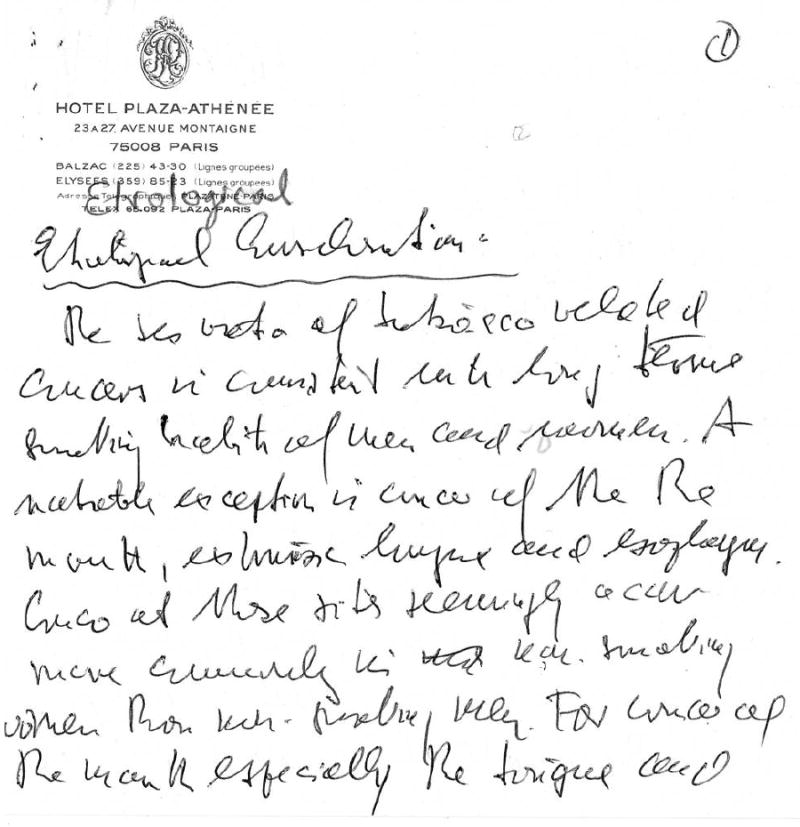 ①
HOTEL PLAZA-ATHÉNÉE
23 A 27, AVENUE MONTAIGNE
75008 PARIS
BALZAC (225) 43-30 (Lignes groupées)
ELYSEES (359) 85-23 (Lignes groupées)
Adresse Télégraphique: PLAZATENE-PARIS
TELEX 65.092 PLAZA-PARIS
Etiological
Etiological Consideration:
The sex ratio of tobacco related
cancers is consistent with long term
smoking habits of men and women. A
notable exception is cancer of the The
mouth, larynx and esophagus.
Cancer at these sites seemingly occur
more commonly in non-smoking
women than non-smoking men. For cancer of
the mouth especially the tongue and